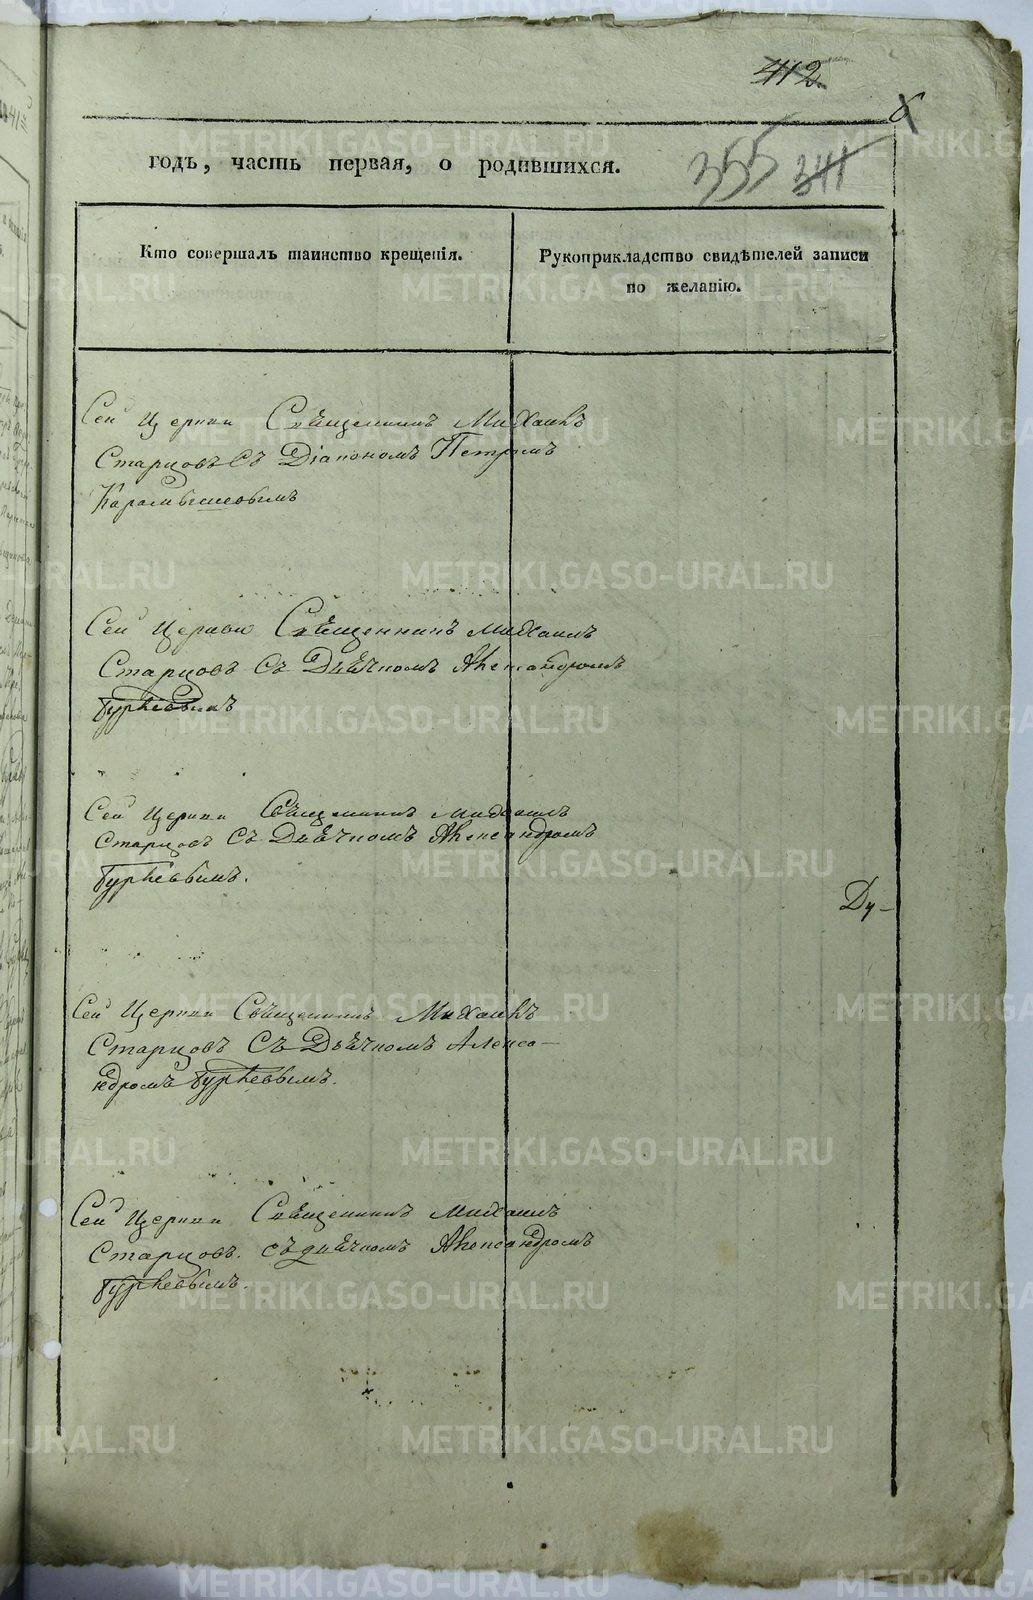 412
6
годъ, часть первая, о родившихся.
355 341
Кто совершалъ таинство крещенія.
Рукоприкладство свидѣтелей записи
по желанію.
Сей Церкви Священникъ Михаилъ
Старцовъ Съ Діакономъ Петромъ
Карамышевымъ
Сей Церкви Священникъ Михаилъ
Старцовъ Съ Дьячкомъ Александромъ
Сей Церкви Священникъ Михаилъ
Старцовъ Съ Дьячкомъ Александромъ
Ду-
Сей Церкви Священникъ Михаилъ
Старцовъ Съ Дьячкомъ Алекса-
ндромъ
Сей Церкви Священникъ Михаилъ
Старцовъ. съ дьячкомъ Александромъ
METRIKI.GASO-URAL.RU